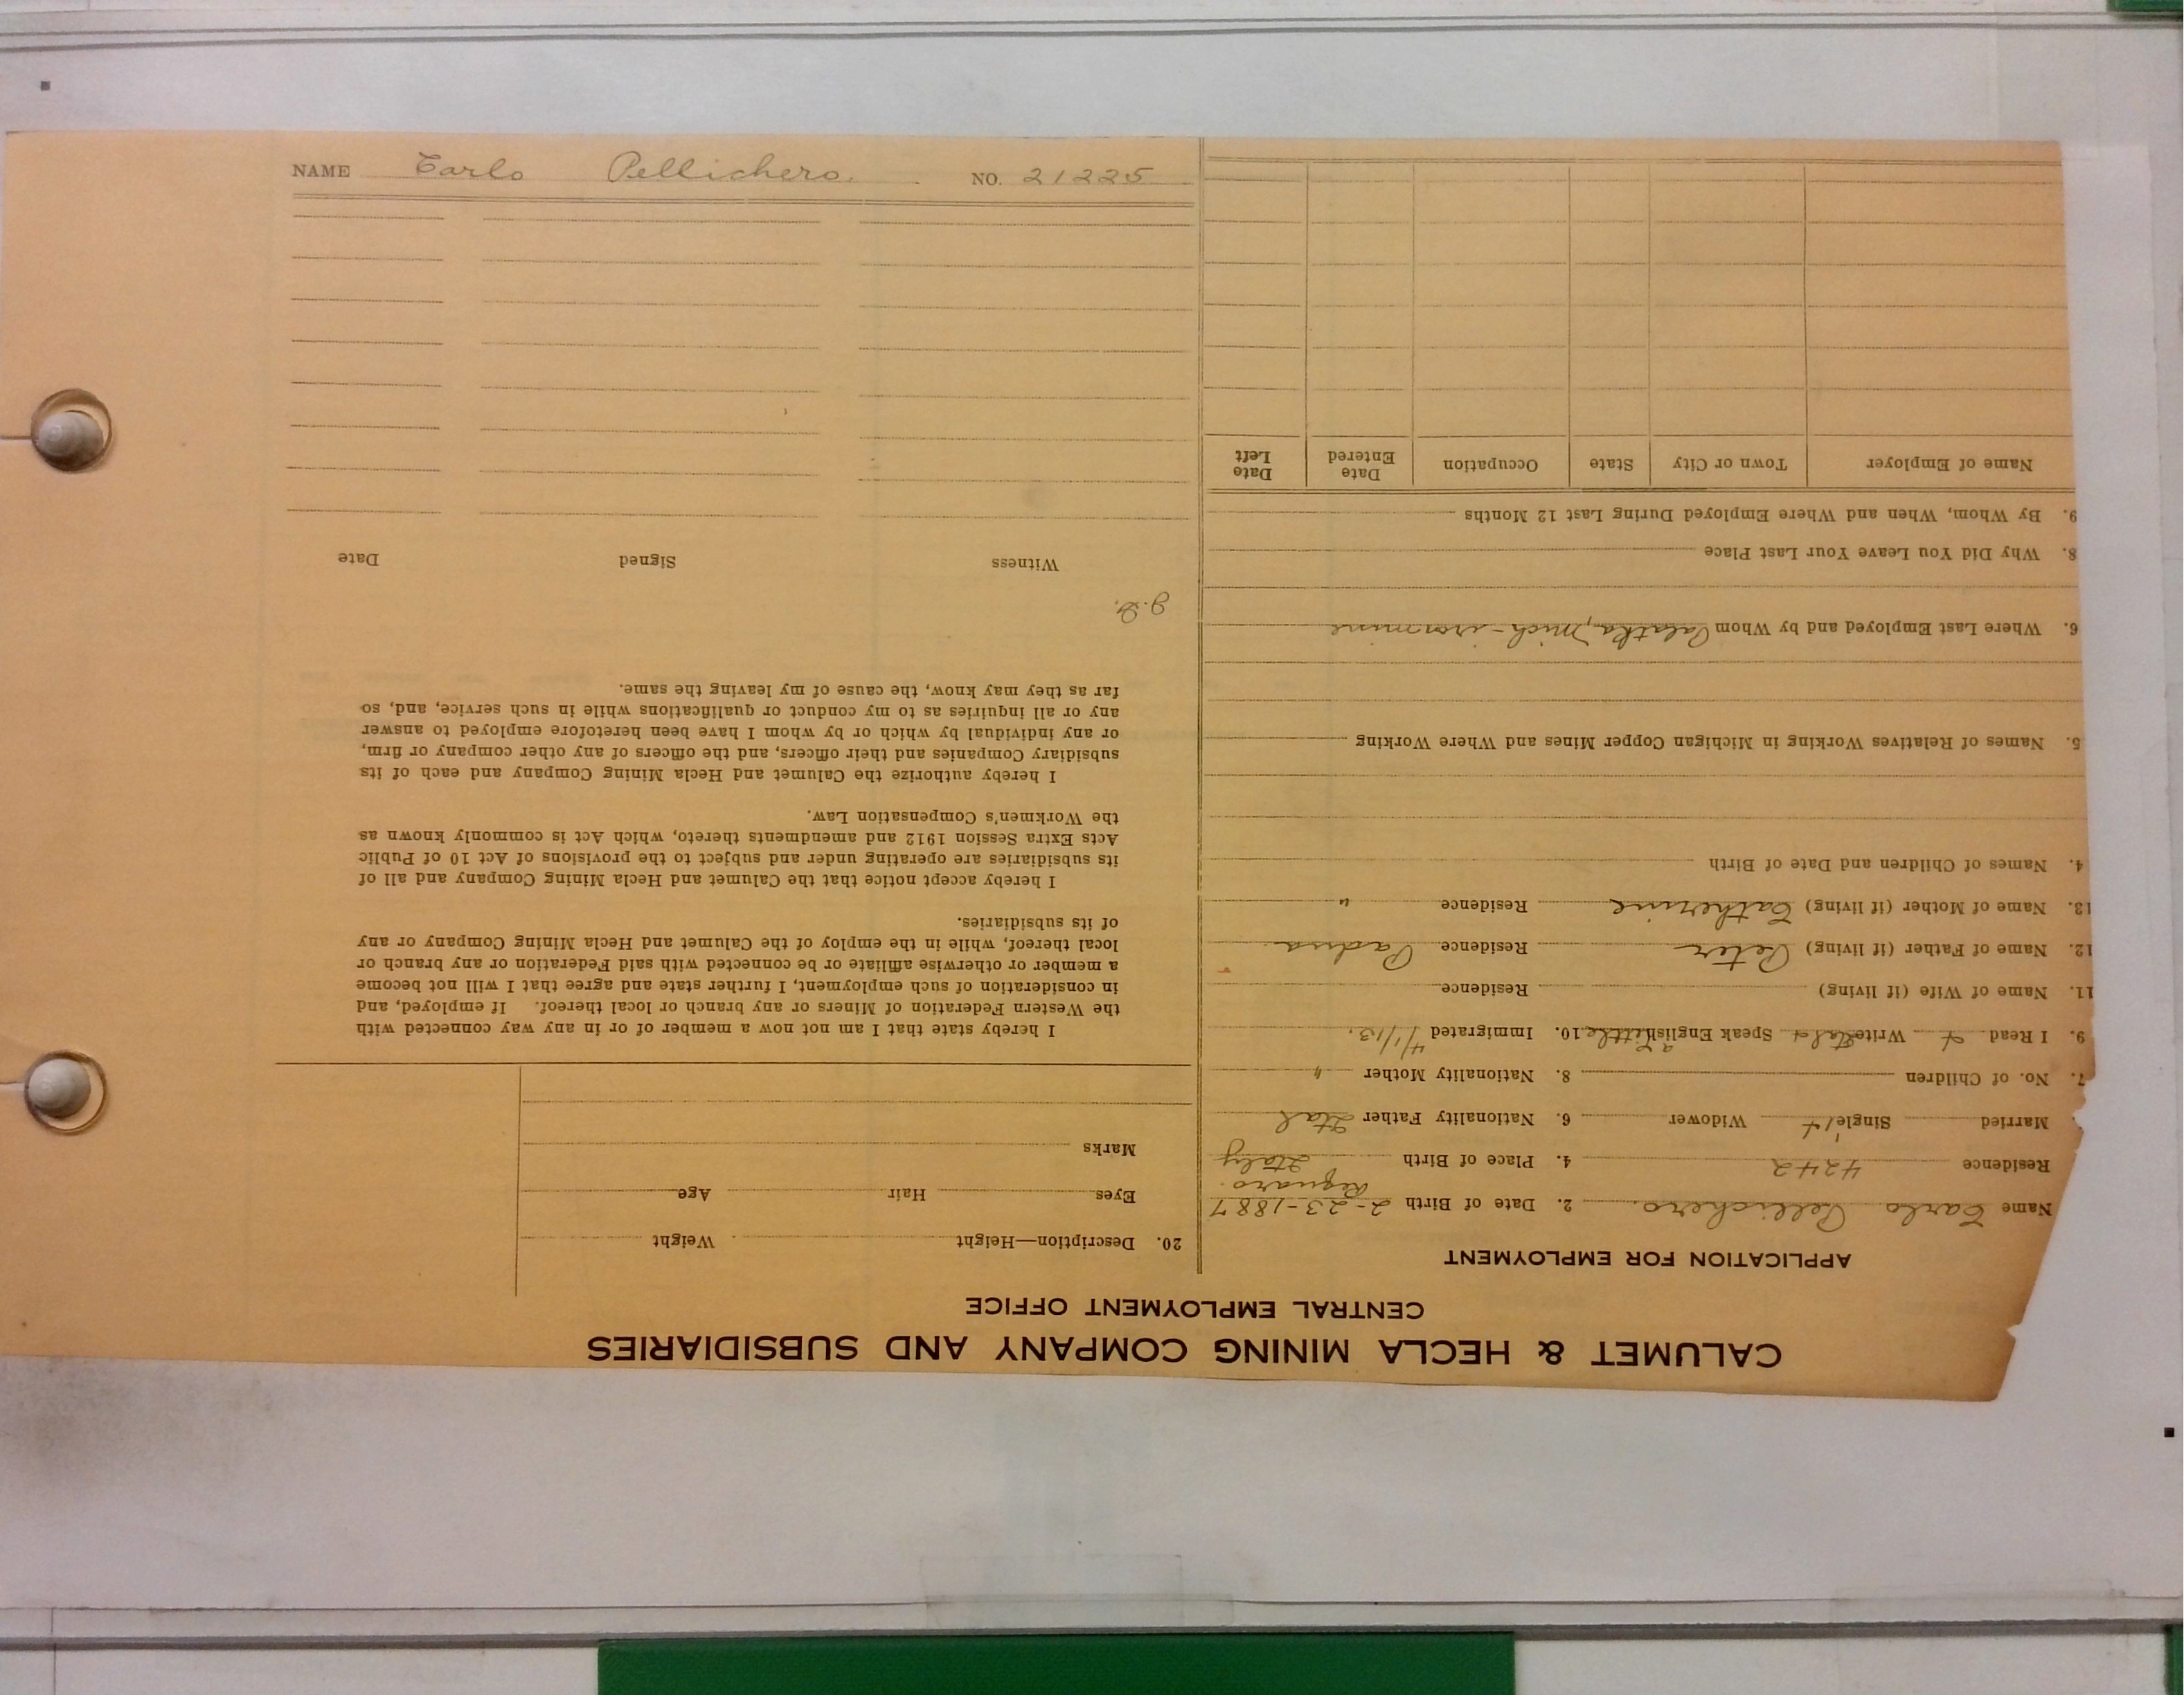 NAME Carlo Pellichero. NO. 21225
CALUMET & HECLA MINING COMPANY AND SUBSIDIARIES
CENTRAL EMPLOYMENT OFFICE
APPLICATION FOR EMPLOYMENT
Name Carlo Pellichero. 2. Date of Birth 2-23-1887
Residence 4242 4. Place of Birth Italy
Married Single 1 + Widower 6. Nationality Father Ital
7. No. of Children 8. Nationality Mother "
9. I Read + Write Ital + Speak English a little 10. Immigrated 4/1/13.
11. Name of Wife (if living) Residence
12. Name of Father (if living) Peter Residence Padua
13. Name of Mother (if living) Catherine Residence "
4. Names of Children and Date of Birth
5. Names of Relatives Working in Michigan Copper Mines and Where Working
6. Where Last Employed and by Whom Palatka, Mich - iron mine
8. Why Did You Leave Your Last Place
9. By Whom, When and Where Employed During Last 12 Months
Name of Employer Town or City State Occupation Date Entered Date Left
20. Description—Height Weight
Eyes Hair Age
Marks
I hereby state that I am not now a member of or in any way connected with
the Western Federation of Miners or any branch or local thereof. If employed, and
in consideration of such employment, I further state and agree that I will not become
a member or otherwise affiliate or be connected with said Federation or any branch or
local thereof, while in the employ of the Calumet and Hecla Mining Company or any
of its subsidiaries.
I hereby accept notice that the Calumet and Hecla Mining Company and all of
its subsidiaries are operating under and subject to the provisions of Act 10 of Public
Acts Extra Session 1912 and amendments thereto, which Act is commonly known as
the Workmen's Compensation Law.
I hereby authorize the Calumet and Hecla Mining Company and each of its
subsidiary Companies and their officers, and the officers of any other company or firm,
or any individual by which or by whom I have been heretofore employed to answer
any or all inquiries as to my conduct or qualifications while in such service, and, so
far as they may know, the cause of my leaving the same.
Witness Signed Date